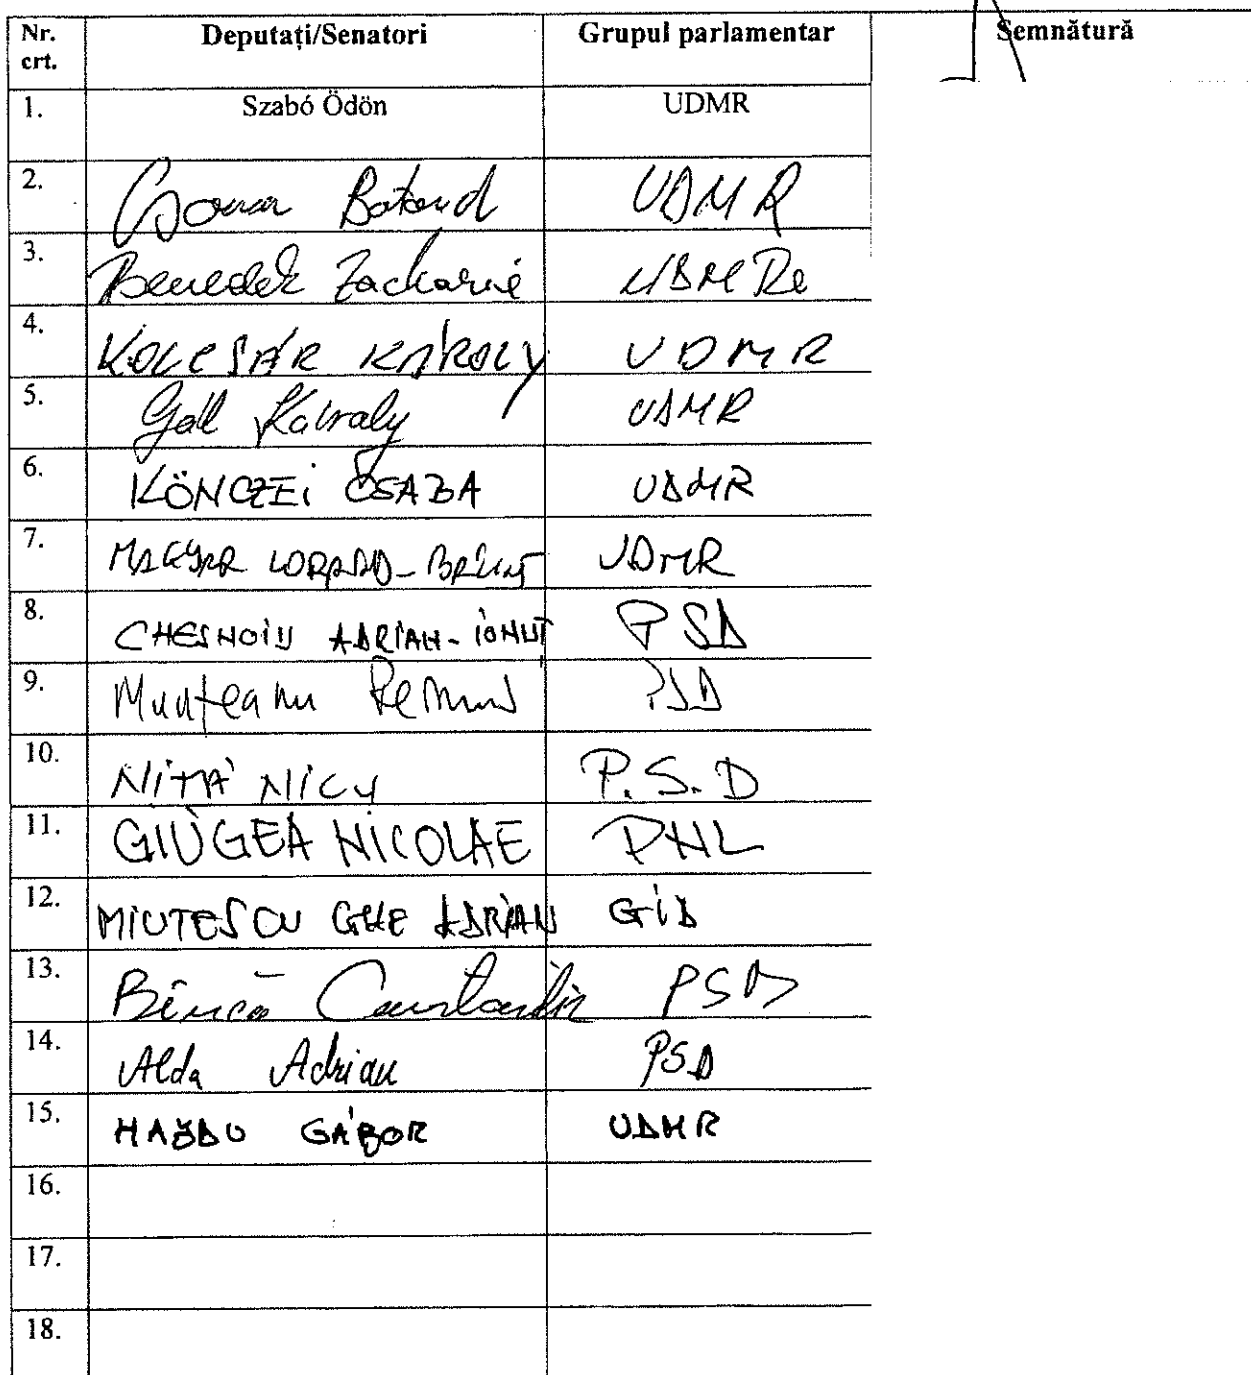 Nr. crt. Deputați/Senatori Grupul parlamentar Semnătură
1. Szabó Ödön UDMR
2. Csoma Botond UDMR
3. Benedek Zacharie UDMR
4. KOLCSÁR KÁROLY UDMR
5. Gál Károly UDMR
6. KÖNCZEI CSABA UDMR
7. MAGYAR LORÁND-BÁLINT UDMR
8. CHESNOIU ADRIAN-IONUȚ PSD
9. Munteanu Remus PSD
10. NIȚĂ NICU P.S.D
11. GIUGEA NICOLAE PNL
12. MIUTESCU GHE ADRIAN
13. Bîncă Constantin PSD
14. Alda Adrian PSD
15. HAJDU GÁBOR UDMR
16.
17.
18.